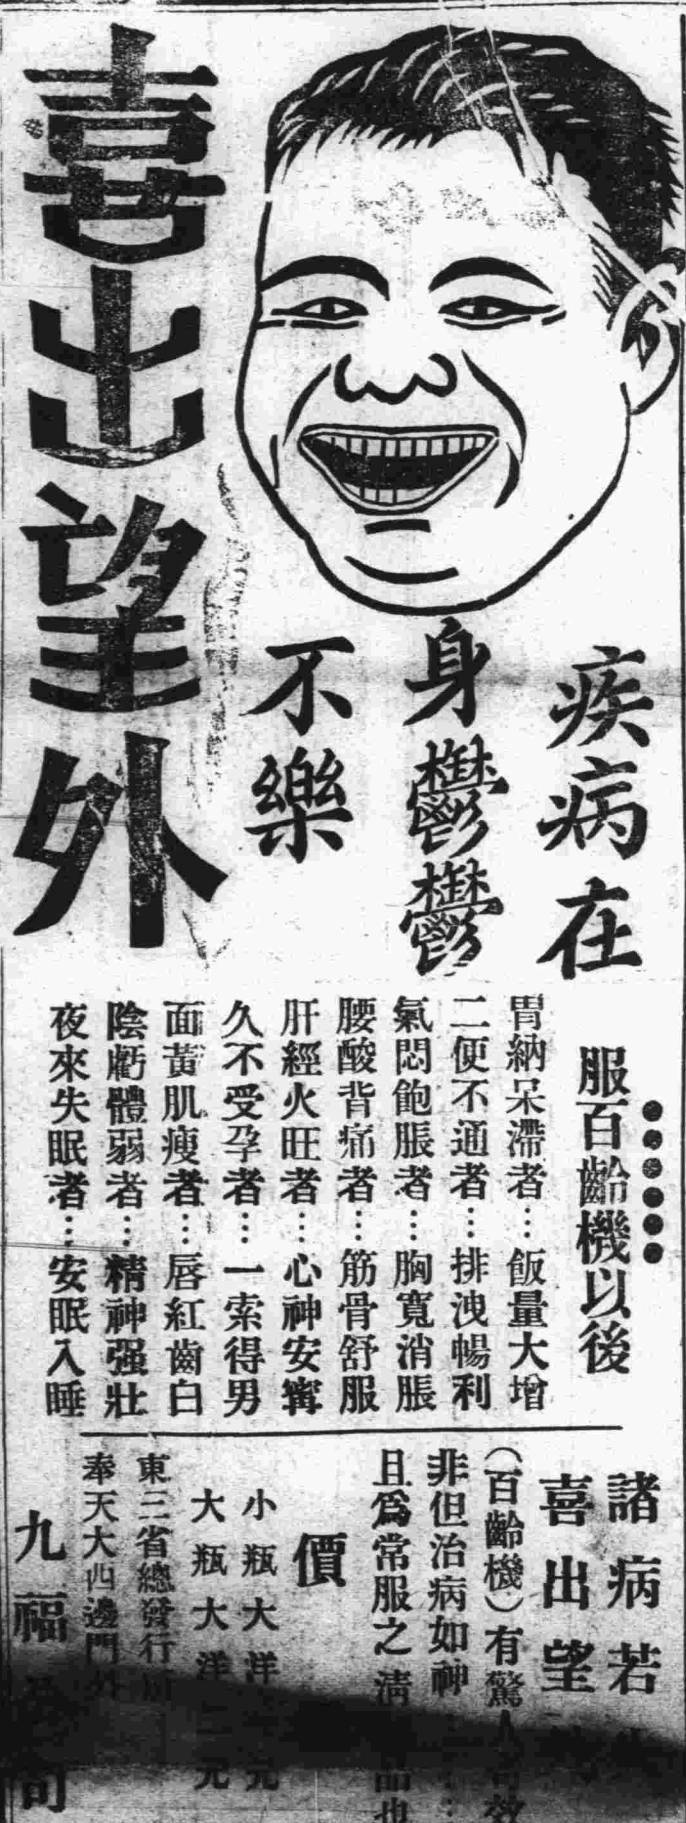 喜出望外
疾病在
身鬱鬱
不樂
服百齡機以後
胃納呆滯者…飯量大增
二便不通者…排洩暢利
氣悶飽脹者…胸寬消脹
腰酸背痛者…筋骨舒服
肝經火旺者…心神安寗
久不受孕者…一索得男
面黃肌瘦者…唇紅齒白
陰虧體弱者…精神强壯
夜來失眠者…安眠入睡
諸病若
喜出望
(百齡機)有驚 效
非但治病如神
且爲常服之淸 品也
價
小瓶大洋 元
大瓶大洋 元
東三省總發行
奉天大西邊門外
九福 司